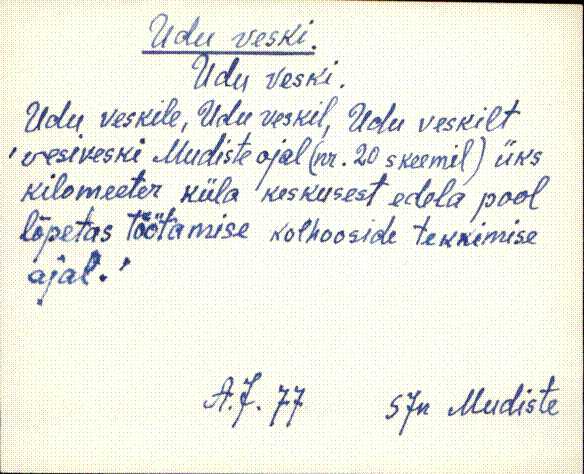 Udu veski.
Udu veski.
Udu veskile, Udu veskil, Udu veskilt
'vesiveski Mudiste ojal (nr. 20 skeemil) üks
kilomeeter küla keskusest edela pool
lõpetas töötamise kolhooside tekkimise
ajal.'
A.J. 77 SJn Mudiste